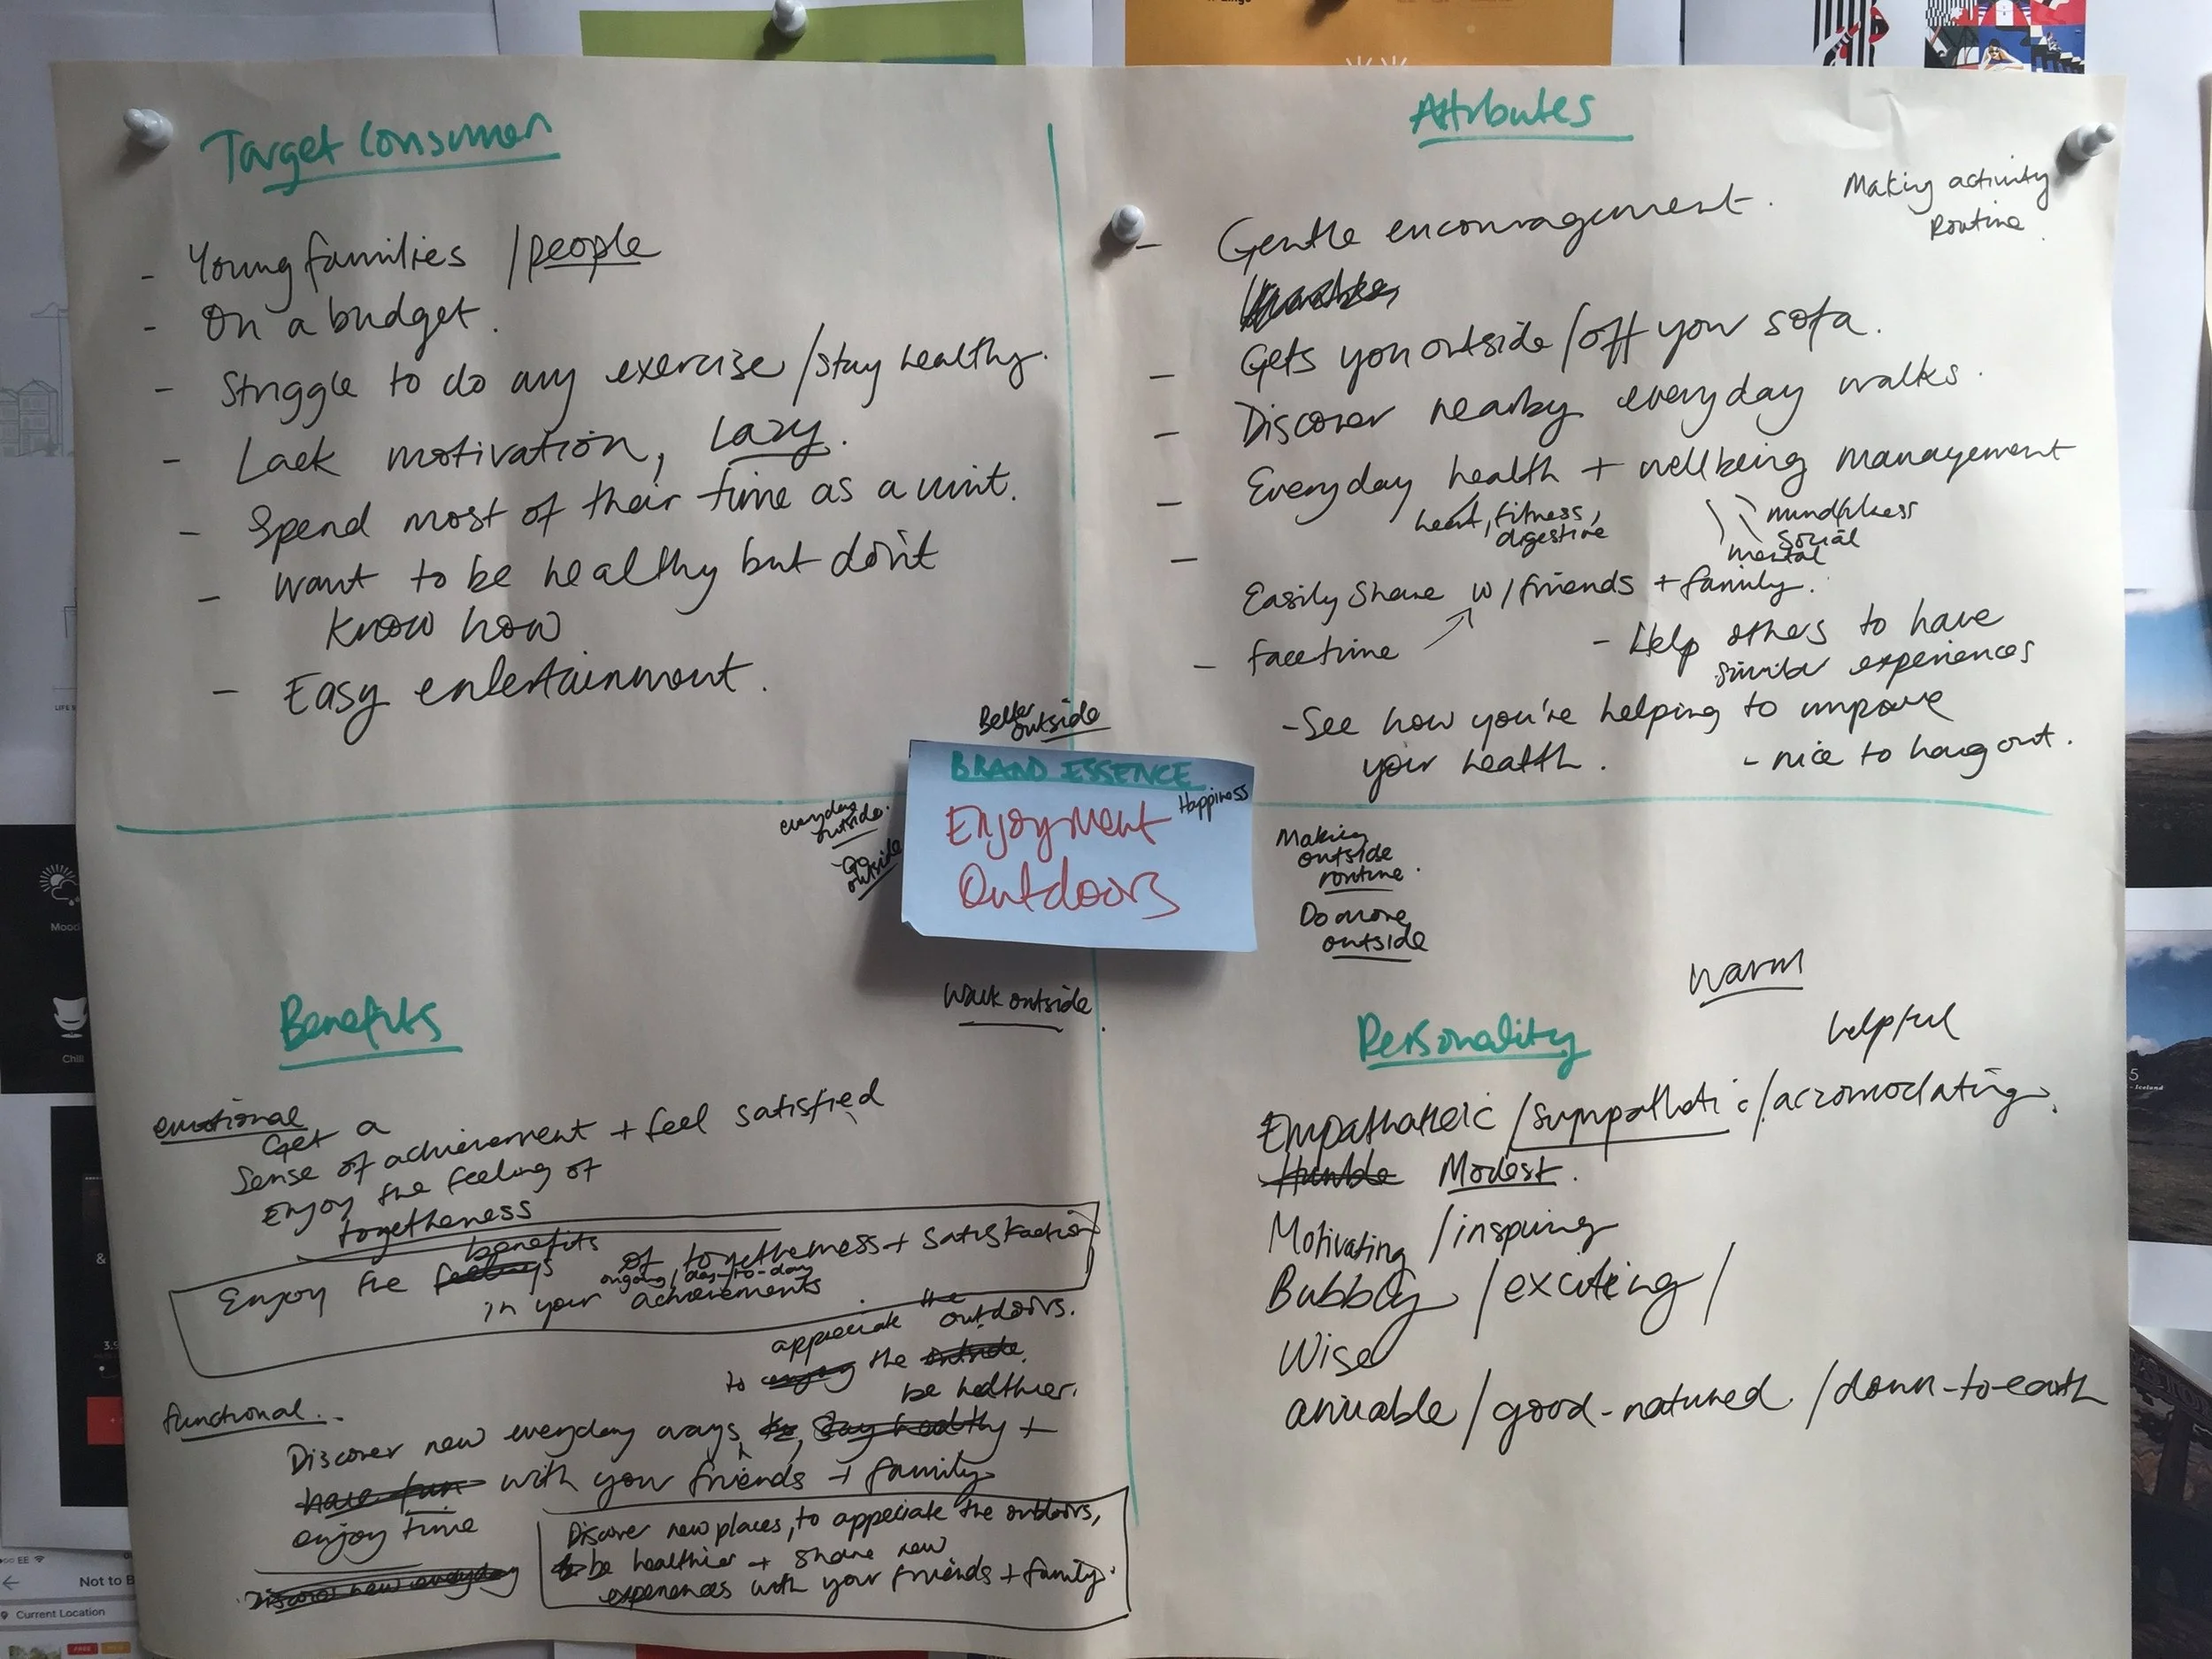 Target Consumer
- Young families / people
- On a budget.
- Struggle to do any exercise / stay healthy.
- Lack motivation, lazy.
- Spend most of their time as a unit.
- Want to be healthy but don't
know how
- Easy entertainment.
Attributes
Making activity
Routine
- Gentle encouragement.
- Gets you outside / off your sofa.
- Discover nearby everyday walks.
- Everyday health + wellbeing management
heart, fitness,
digestive
mindfulness
social
mental
- Easily share w/ friends + family.
- facetime
- Help others to have
similar experiences
- See how you're helping to improve
your health.
- nice to hang out.
Better
outside
BRAND ESSENCE
Happiness
Enjoyment
Outdoors
everyday
outside.
Go
outside
Making
outside
routine.
Do more
outside
Walk outside
Benefits
emotional
Get a
Sense of achievement + feel satisfied
Enjoy the feeling of
togetherness
benefits
Enjoy the feelings of togetherness + satisfaction
ongoing / day-to-day
in your achievements
the
appreciate outdoors.
to enjoy the outside.
be healthier.
functional.
Discover new everyday ways to, stay healthy +
have fun with your friends + family
enjoy time
Discover new everyday
Discover new places, to appeciate the outdoors,
to be healthier + share new
experiences with your friends + family.
Warm
helpful
Personality
Empathatetic / sympathetic / accomodating.
Humble Modest.
Motivating / inspiring
Bubbly / exciting /
Wise
amiable / good-natured / down-to-earth
Mood
Chill
LIFE S
&
3.5
EE
Not to B
Current Location
FREE
5
- Iceland